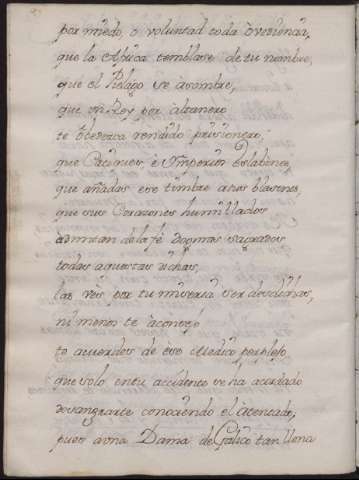 por miedo, o voluntad toda obediencia,
que la Africa temblase de tu nombre,
que el Pielago se asombre,
que un Rey por altanero
te obedezca rendido prisionero;
que Caciques, è Imperios eslabones,
que añadas ese timbre a tus blasones,
que sus Corazones humillados
admitan de la fé Dogmas sagrados
todas aquestas dichas,
las ves por tu miseria ser desdichas,
ni menos te aconsejo
te acuerdes de ese Medico perplejo
que solo en tu accidente se ha acordado
desangrarte conociendo el atentado;
pues a una Dama de Galico tan llena